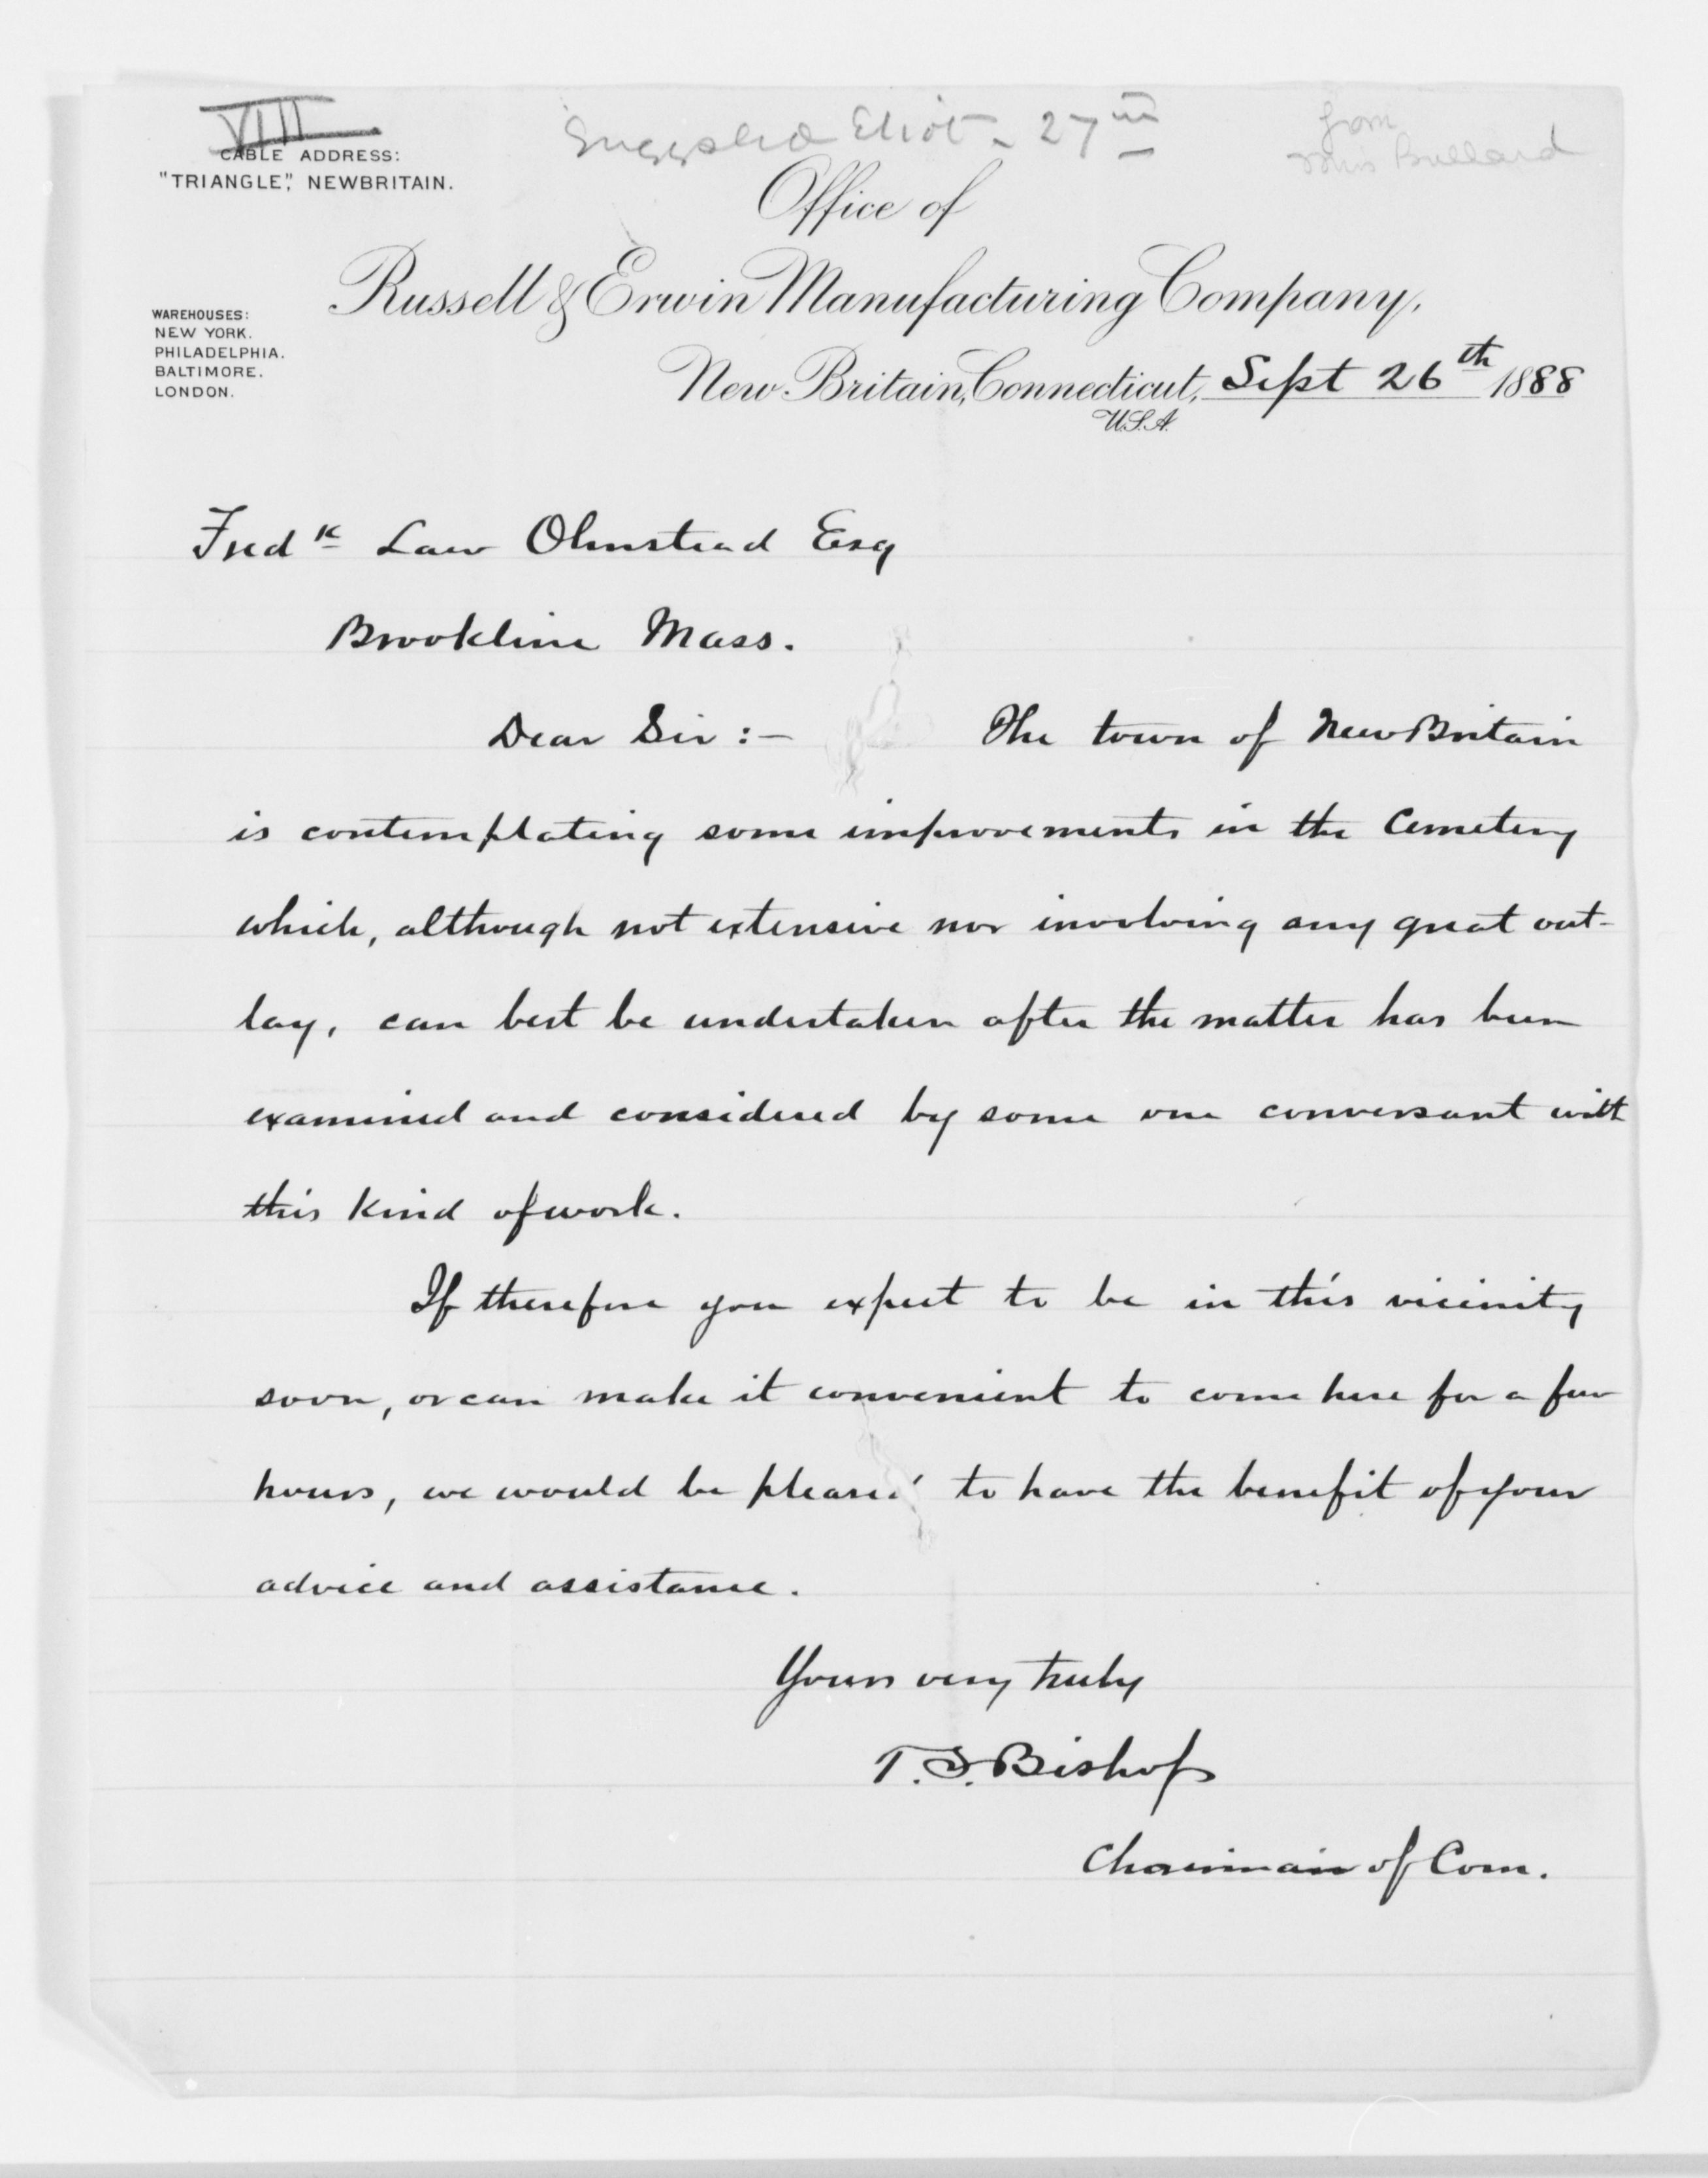 VIII
Suggested Eliot - 27th
from
Miss Bullard
CABLE ADDRESS:
"TRIANGLE," NEWBRITAIN.
Office of
Russell & Erwin Manufacturing Company,
WAREHOUSES:
NEW YORK.
PHILADELPHIA.
BALTIMORE.
LONDON.
New Britain, Connecticut, Sept 26th 1888
U.S.A.
Fredk Law Olmstead Esq
Brookline Mass.
Dear Sir :— The town of New Britain
is contemplating some improvements in the Cemetery
which, although not extensive nor involving any great out-
lay, can best be undertaken after the matter has been
examined and considered by some one conversant with
this kind of work.
If therefore you expect to be in this vicinity
soon, or can make it convenient to come here for a few
hours, we would be pleased to have the benefit of your
advice and assistance.
Yours very truly
T. S. Bishop
Chairman of Com.